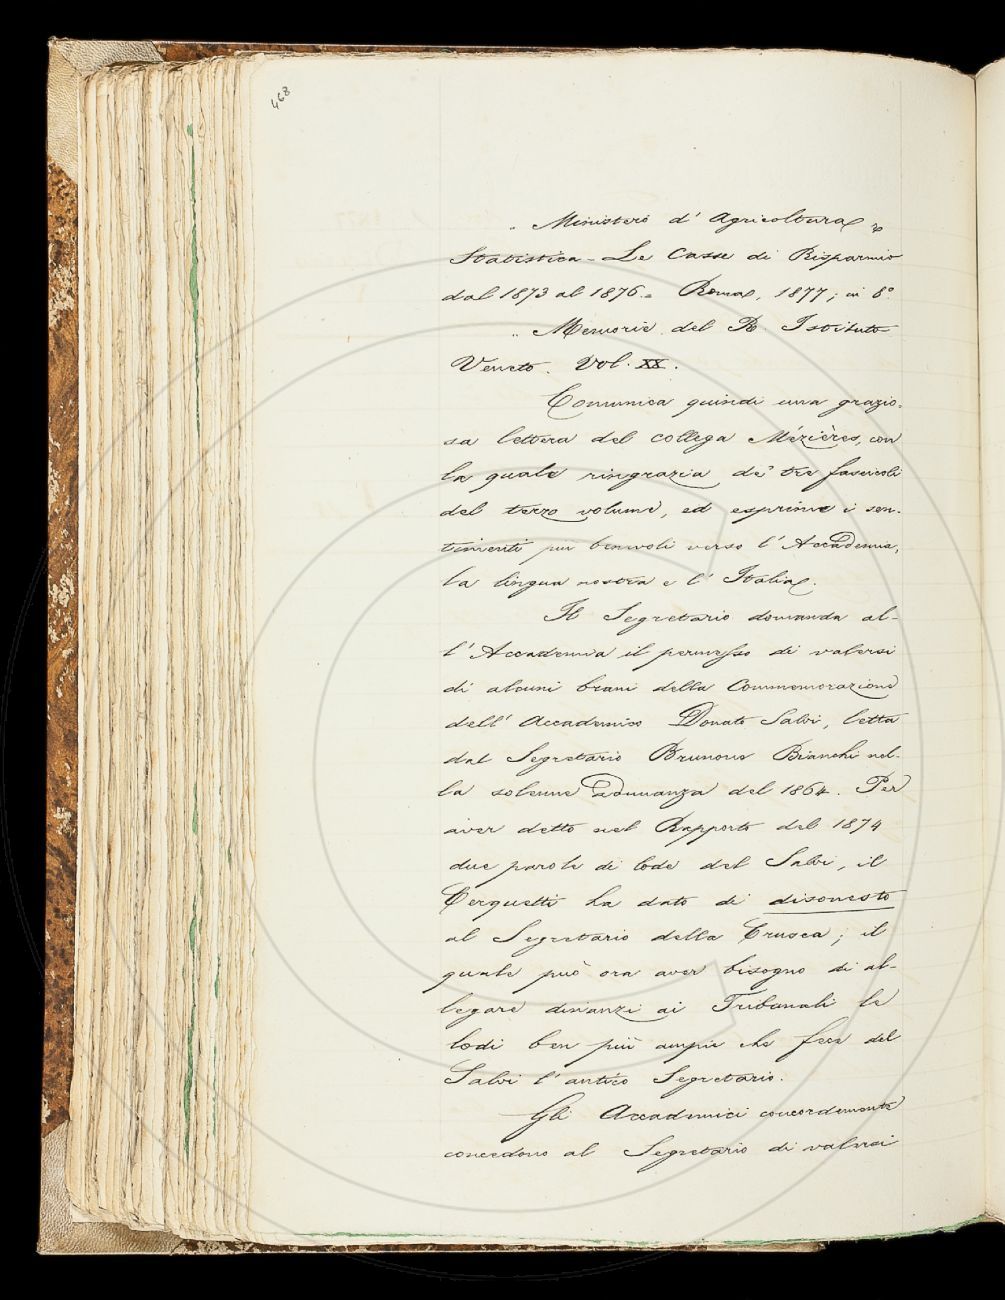 468
„ Ministero d' Agricoltura, e
Statistica - Le Casse di Risparmio
dal 1873 al 1876. „ Roma, 1877; in 8°.
„ Memorie del R. Istituto
Veneto. Vol. XX.
Comunica quindi una grazio-
sa lettera del collega Mézières, con
la quale ringrazia de' tre fascicoli
del terzo volume, ed esprime i sen-
timenti più benevoli verso l' Accademia,
la lingua nostra e l' Italia.
Il Segretario domanda al-
l' Accademia il permesso di valersi
di alcuni brani della Commemorazione
dell' Accademico Donato Salvi, letta
dal Segretario Brunone Bianchi nel-
la solenne Adunanza del 1864. Per
aver detto nel Rapporto del 1874
due parole di lode del Salvi, il
Cerquetti ha dato di disonesto
al Segretario della Crusca; il
quale può ora aver bisogno di al-
legare dinanzi ai Tribunali le
lodi ben più ampie che fece del
Salvi l' antico Segretario.
Gli Accademici concordemente
concedono al Segretario di valersi